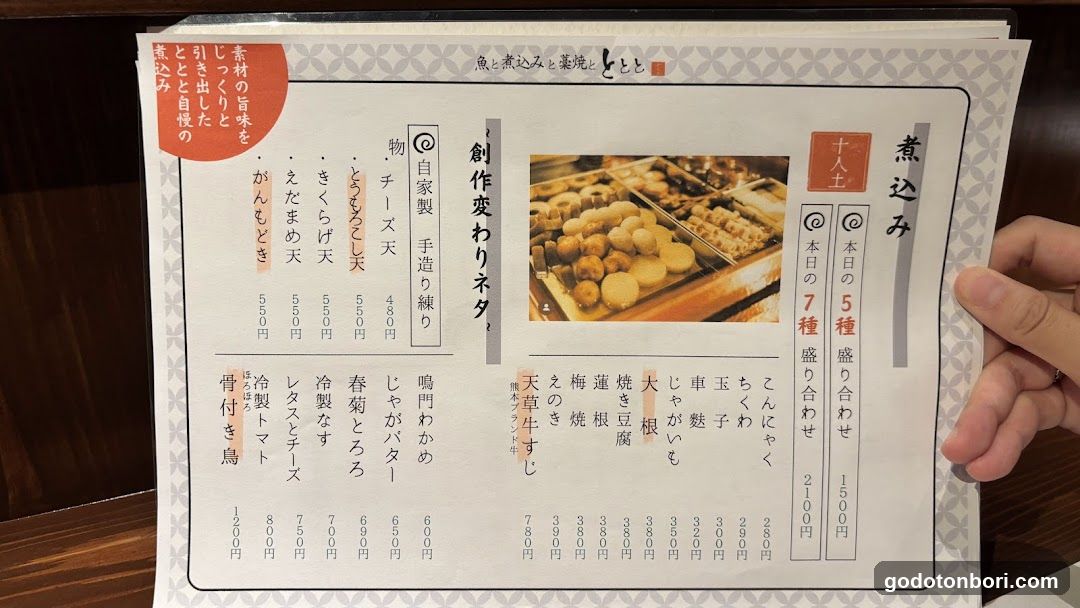 魚と煮込みと藁焼と ととと
素材の旨味を
じっくりと
引き出した
ととと自慢の
煮込み
煮込み
十人土
本日の 5種 盛り合わせ 1500円
本日の 7種 盛り合わせ 2100円
こんにゃく 280円
ちくわ 290円
玉子 300円
車麩 320円
じゃがいも 350円
大根 380円
焼き豆腐 380円
蓮根 380円
梅焼 380円
えのき 390円
天草牛すじ 780円
熊本ブランド牛
創作変わりネタ
自家製 手造り練り
物
・チーズ天 480円
・とうもろこし天 550円
・きくらげ天 550円
・えだまめ天 550円
・がんもどき 550円
鳴門わかめ 600円
じゃがバター 650円
春菊とろろ 690円
冷製なす 700円
レタスとチーズ 750円
冷製トマト 800円
ほろほろ
骨付き鳥 1200円
godotonbori.com